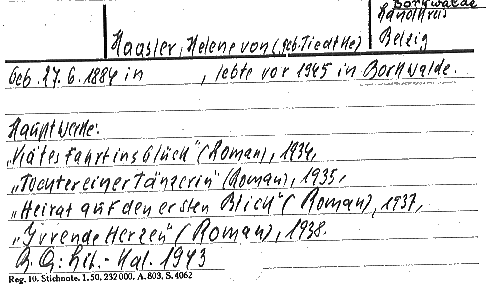 Borkwalde
Landkreis
Belzig
Haasler, Helene von (geb. Tiedthe)
Geb. 27.6.1884 in , lebte vor 1945 in Borkwalde.
Hauptwerke:
„Kätes Fahrt ins Glück" (Roman), 1934,
„Tochter einer Tänzerin" (Roman), 1935,
„Heirat auf den ersten Blick" (Roman), 1937,
„Irrende Herzen" (Roman), 1938.
Lit.-Kal. 1943
Reg. 10. Stichnote. 1. 50, 232000. A. 803, S. 4062